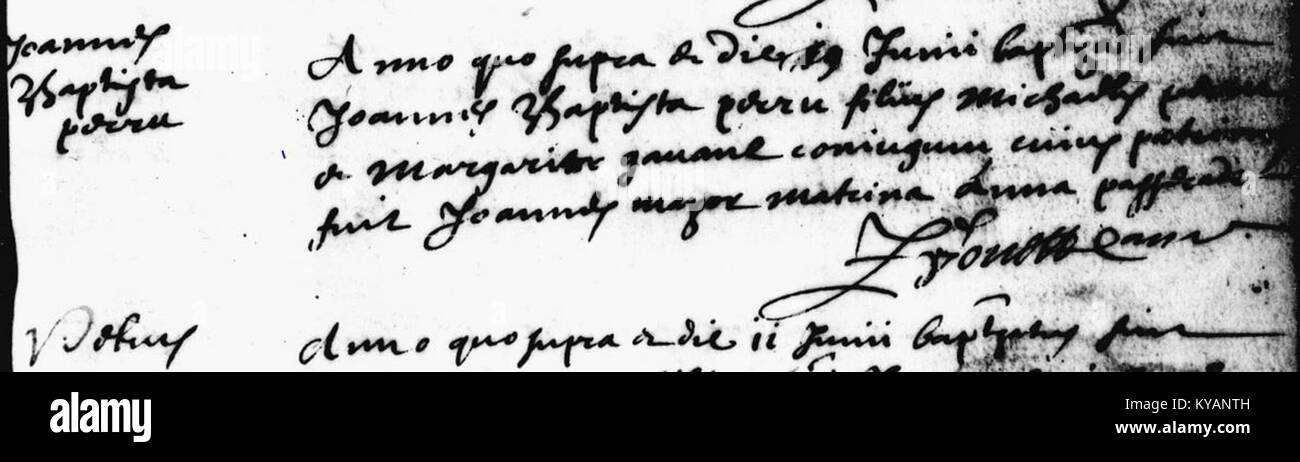 Joannes
Baptista
perru
Anno quo supra et die 19 Junii baptus fuit
Joannes Baptista perru filius Michaelis
et Margarite gavaul coniugum cuius patrinus
fuit Joannes mazor matrina Anna passerade
Petrus
Anno quo supra et die ii Junii baptizatus fuit
alamy
Image ID: KYANTH
www.alamy.com